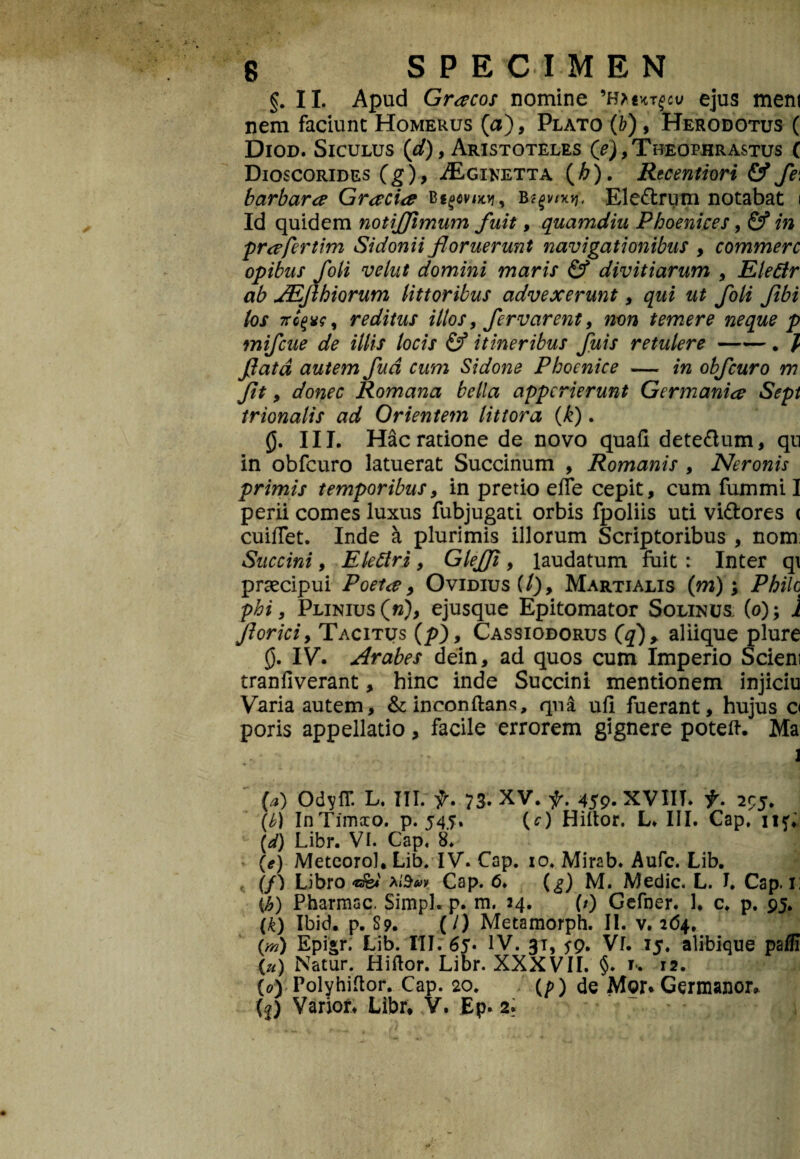 8 SPECIMEN
§. II. Apud Græcos nomine Ἤλεκτρου ejus ment
nem faciunt HOMERUS (a), PLATO (b), HERODOTUS (
DIOD. SICULUS (d), ARISTOTELES (e), THEOPHRASTUS (
DIOSCORIDES (g), ÆGINETTA (h). Recentiori & fe
barbaræ Græciæ Βερονικη, Βερνικη, Electrum notabat i
Id quidem notiſſimum fuit, quamdiu Phoenices, & in
præſertim Sidonii floruerunt navigationibus, commerc
opibus ſoli velut domini maris & divitiarum, Electr
ab Æſthiorum littoribus advexerunt, qui ut ſoli ſibi
los πόρυς, reditus illos, ſervarent, non temere neque p
miſcue de illis locis & itineribus ſuis retulere ——.
ſtatâ autem ſuâ cum Sidone Phoenice — in obſcuro m
ſit, donec Romana bella apperierunt Germaniæ Sept
trionalis ad Orientem littora (k).
§. III. Hâc ratione de novo quaſi detectum, qu
in obſcuro latuerat Succinum, Romanis, Neronis
primis temporibus, in pretio eſſe cepit, cum ſummi I
perii comes luxus ſubjugati orbis ſpoliis uti victores c
cuiſſet. Inde à plurimis illorum Scriptoribus, nom
Succini, Electri, Gleſſi, laudatum fuit: Inter qu
præcipui Poetæ, OVIDIUS (l), MARTIALIS (m); Philo
phi, PLINIUS (n), ejusque Epitomator SOLINUS (o);
ſtorici, TACITUS (p), CASSIODORUS (q), aliique plure
§. IV. Arabes dein, ad quos cum Imperio Scient
tranſiverant, hinc inde Succini mentionem injiciu
Varia autem, & inconſtans, quâ uſi fuerant, hujus c
poris appellatio, facile errorem gignere poteſt. Ma
(a) Odyſſ. L. III. ℣. 73. XV. ℣. 459. XVIII. ℣. 295.
(b) In Timæo. p. 545. (c) Hiſtor. L. III. Cap. 115.
(d) Libr. VI. Cap. 8.
(e) Meteorol. Lib. IV. Cap. 10. Mirab. Auſc. Lib.
(f) Libro περὶ λίθων Cap. 6. (g) M. Medic. L. I. Cap. 1
(h) Pharmac. Simpl. p. m. 24. (i) Geſner. l. c. p. 95.
(k) Ibid. p. 89. (l) Metamorph. II. v. 264.
(m) Epigr. Lib. III. 65. IV. 31, 59. VI. 15. alibique paſſi
(n) Natur. Hiſtor. Libr. XXXVII. §. 1. 12.
(o) Polyhiſtor. Cap. 20. (p) de Mor. Germanor.
(q) Varior. Libr. V. Ep. 2.